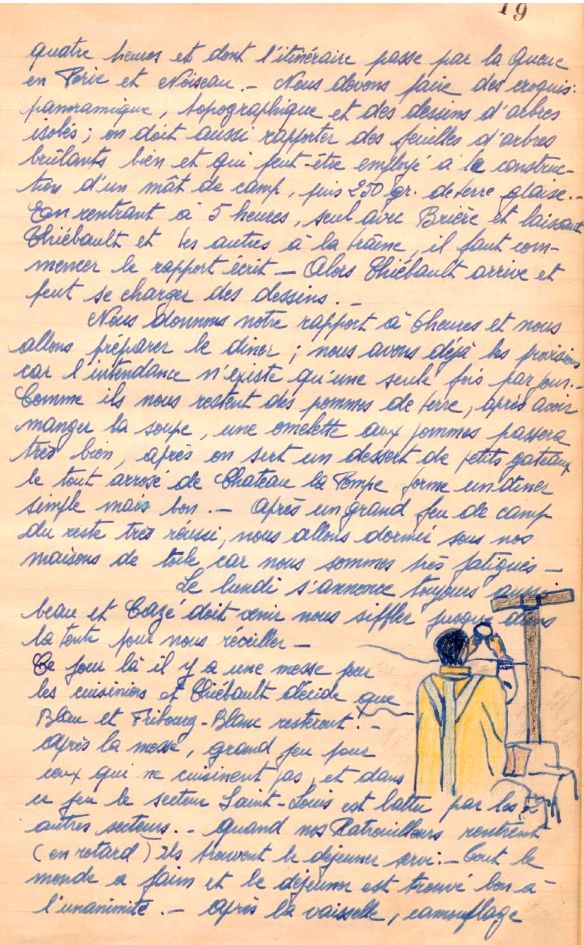 19
quatre heures et dont l'itinéraire passe par la Queue
en Brie et Noiseau. - Nous devons faire des croquis:
panoramique, topographique et des dessins d'arbres
isolés; on doit aussi rapporter des feuilles d'arbres
brûlants bien et qui peut-être employé a la construc-
tion d'un mât de camp, puis 250 gr. de terre glaise. -
En rentrant à 5 heures, seul avec Brière et laissant
Thiébault et les autres a la traîne, il faut com-
mencer le rapport écrit - Alors Thiébault arrive et
peut se charger des dessins. -
Nous donnons notre rapport à 6 heures et nous
allons préparer le diner; nous avons déjà les provisions
car l'intendance n'existe qu'une seule fois par jour. -
Comme ils nous restent des pommes de terre, après avoir
manger la soupe, une omelette aux pommes passera
très bien, après on sert un dessert de petits gateaux
le tout arrosé de Chateau la Pompe forme un diner
simple mais bon. - Après un grand feu de camp
du reste très réussi, nous allons dormir sous nos
maisons de toile car nous sommes très fatigués -
Le lundi s'annonce toujours aussi
beau et Cazé doit venir nous siffler jusque dans
la tente pour nous réveiller -
Ce jour là il y a une messe pour
les cuisiniers et Thiébault décide que
Blau et Fribourg-Blanc resteront. -
Après la messe, grand jeu pour
ceux qui ne cuisinent pas, et dans
ce jeu le secteur Saint-Louis est battu par les 2
autres secteurs. - Quand nos Patrouilleurs rentrent
(en retard) ils trouvent le déjeuner servi: - Tout le
monde a faim et le déjeuner est trouvé bon à
l'unanimité. - Après la vaisselle, camouflage